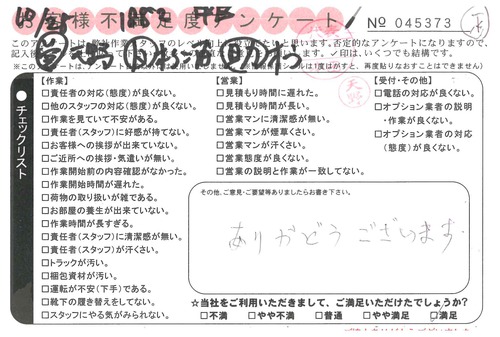 お客様不満足度アンケート
No 045373
このアンケートは、弊社作業スタッフのレベル向上に役立てたいと思います。否定的なアンケートになりますので、
記入後
印は、いくつでも結構です。
【作業】
□責任者の対応(態度)が良くない。
□他のスタッフの対応(態度)が良くない。
□作業を見ていて不安がある。
□責任者(スタッフ)に好感が持てない。
□お客様への挨拶が出来ていない。
□ご近所への挨拶・気遣いが無い。
□作業開始前の内容確認がなかった。
□作業開始時間が遅れた。
□荷物の取り扱いが雑である。
□お部屋の養生が出来ていない。
□作業時間が長すぎる。
□責任者(スタッフ)に清潔感が無い。
□責任者(スタッフ)が汗くさい。
□トラックが汚い。
□梱包資材が汚い。
□運転が不安(下手)である。
□靴下の履き替えをしてない。
□スタッフにやる気がみられない。
【営業】
□見積もり時間に遅れた。
□見積もり時間が長い。
□営業マンに清潔感が無い。
□営業マンが煙草くさい。
□営業マンが汗くさい。
□営業態度が良くない。
□営業の説明と作業が一致してない。
【受付・その他】
□電話の対応が良くない。
□オプション業者の説明
・作業が良くない。
□オプション業者の対応
(態度)が良くない。
チェックリスト
その他、ご意見・ご要望等ありましたらお書き下さい。
ありがとうございます。
☆当社をご利用いただきまして、ご満足いただけたでしょうか?
□不満 □やや不満 □普通 □やや満足 □満足